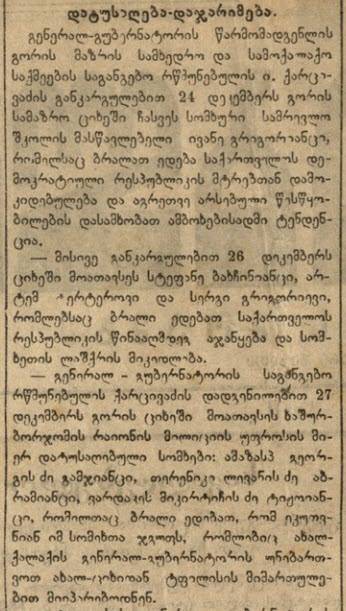 დატუსაღება-დაჯარიმება.
გენერალ-გუბერნატორის წარმომადგენლის
გორის მაზრის სამხედრო და სამოქალაქო
საქმეების საგანგებო რწმუნებულის ი. ქარცი-
ვაძის განკარგულებით 24 დეკემბერს გორის
სამაზრო ციხეში ჩასვეს სომხური სამრევლო
შკოლის მასწავლებელი ივანე გრიგორიანცი,
რომელსაც ბრალათ ედება საქართველოს დე-
მოკრატიული რესპუბლიკის მტრებთან დამო-
კიდებულება და აგრეთვე არსებული წესწყო-
ბილების დასამხობათ ამბოხებისადმი ტენდენ-
ცია.
— მისივე განკარგულებით 26 დეკემბერს
ციხეში მოათავსეს სტეფანე ბახჩინიანცი, არ-
ტემ ტერტეროვი და სერგი გრიგორიევი,
რომლებსაც ბრალი ედებათ საქართველოს
რესპუბლიკის წინააღმდეგ აჯანყება და სომ-
ხეთის ლაშქრის მიკედლება.
— გენერალ-გუბერნატორის საგანგებო
რწმუნებულის ქარცივაძის დადგენილებით 27
დეკემბერს გორის ციხეში მოათავსეს ხაშურ-
ბორჯომის რაიონის მილიციის უფროსის მი-
ერ დატუსაღებული სომხები: ამაზასპ გეორ-
გის ძე გამჯიანცი, თერენიკა ლევანის ძე აბ-
რამიანცი, ვარდაკეს მიკირტიჩის ძე ტიგოიან-
ცი, რომელთაც ბრალი ედებათ, რომ ეკუთვ-
ნიან იმ სომეხთა ჯგუფს, რომლებიც ახალ-
ქალაქის გენერალ-გუბერნატორის უნებართ-
ვოთ ახალ-ციხიდან ტფილისის მიმართულე-
ბით მიიპარებოდნენ.